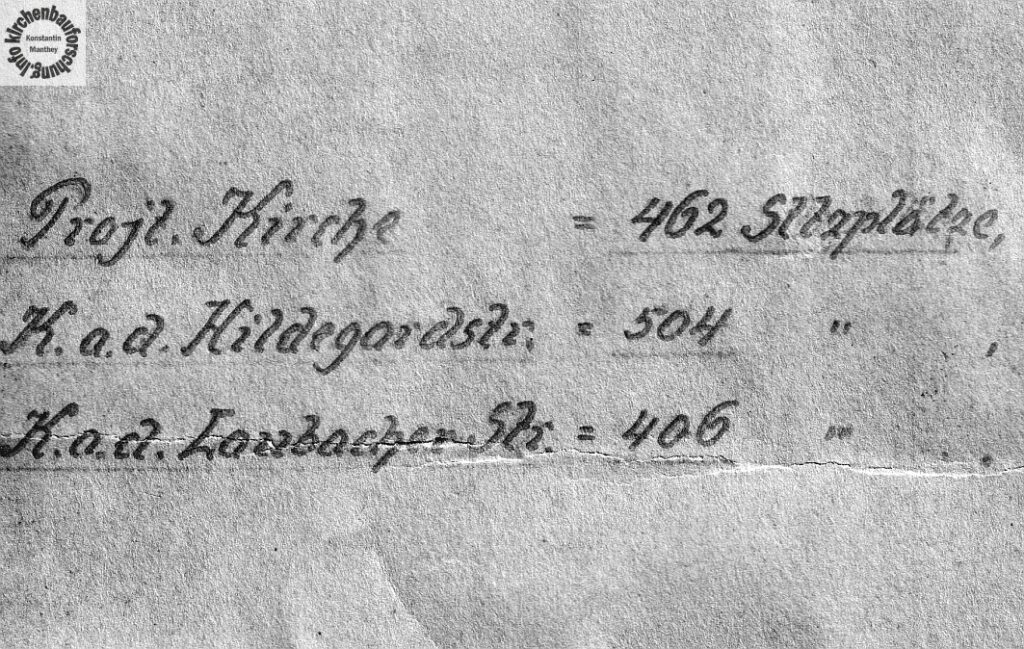 kirchenbauforschung.info
Konstantin
Manthey
Projt. Kirche = 462 Sitzplätze,
K. a. d. Hildegardstr. = 504 " ,
K. a. d. Laubacher Str. = 406 " .